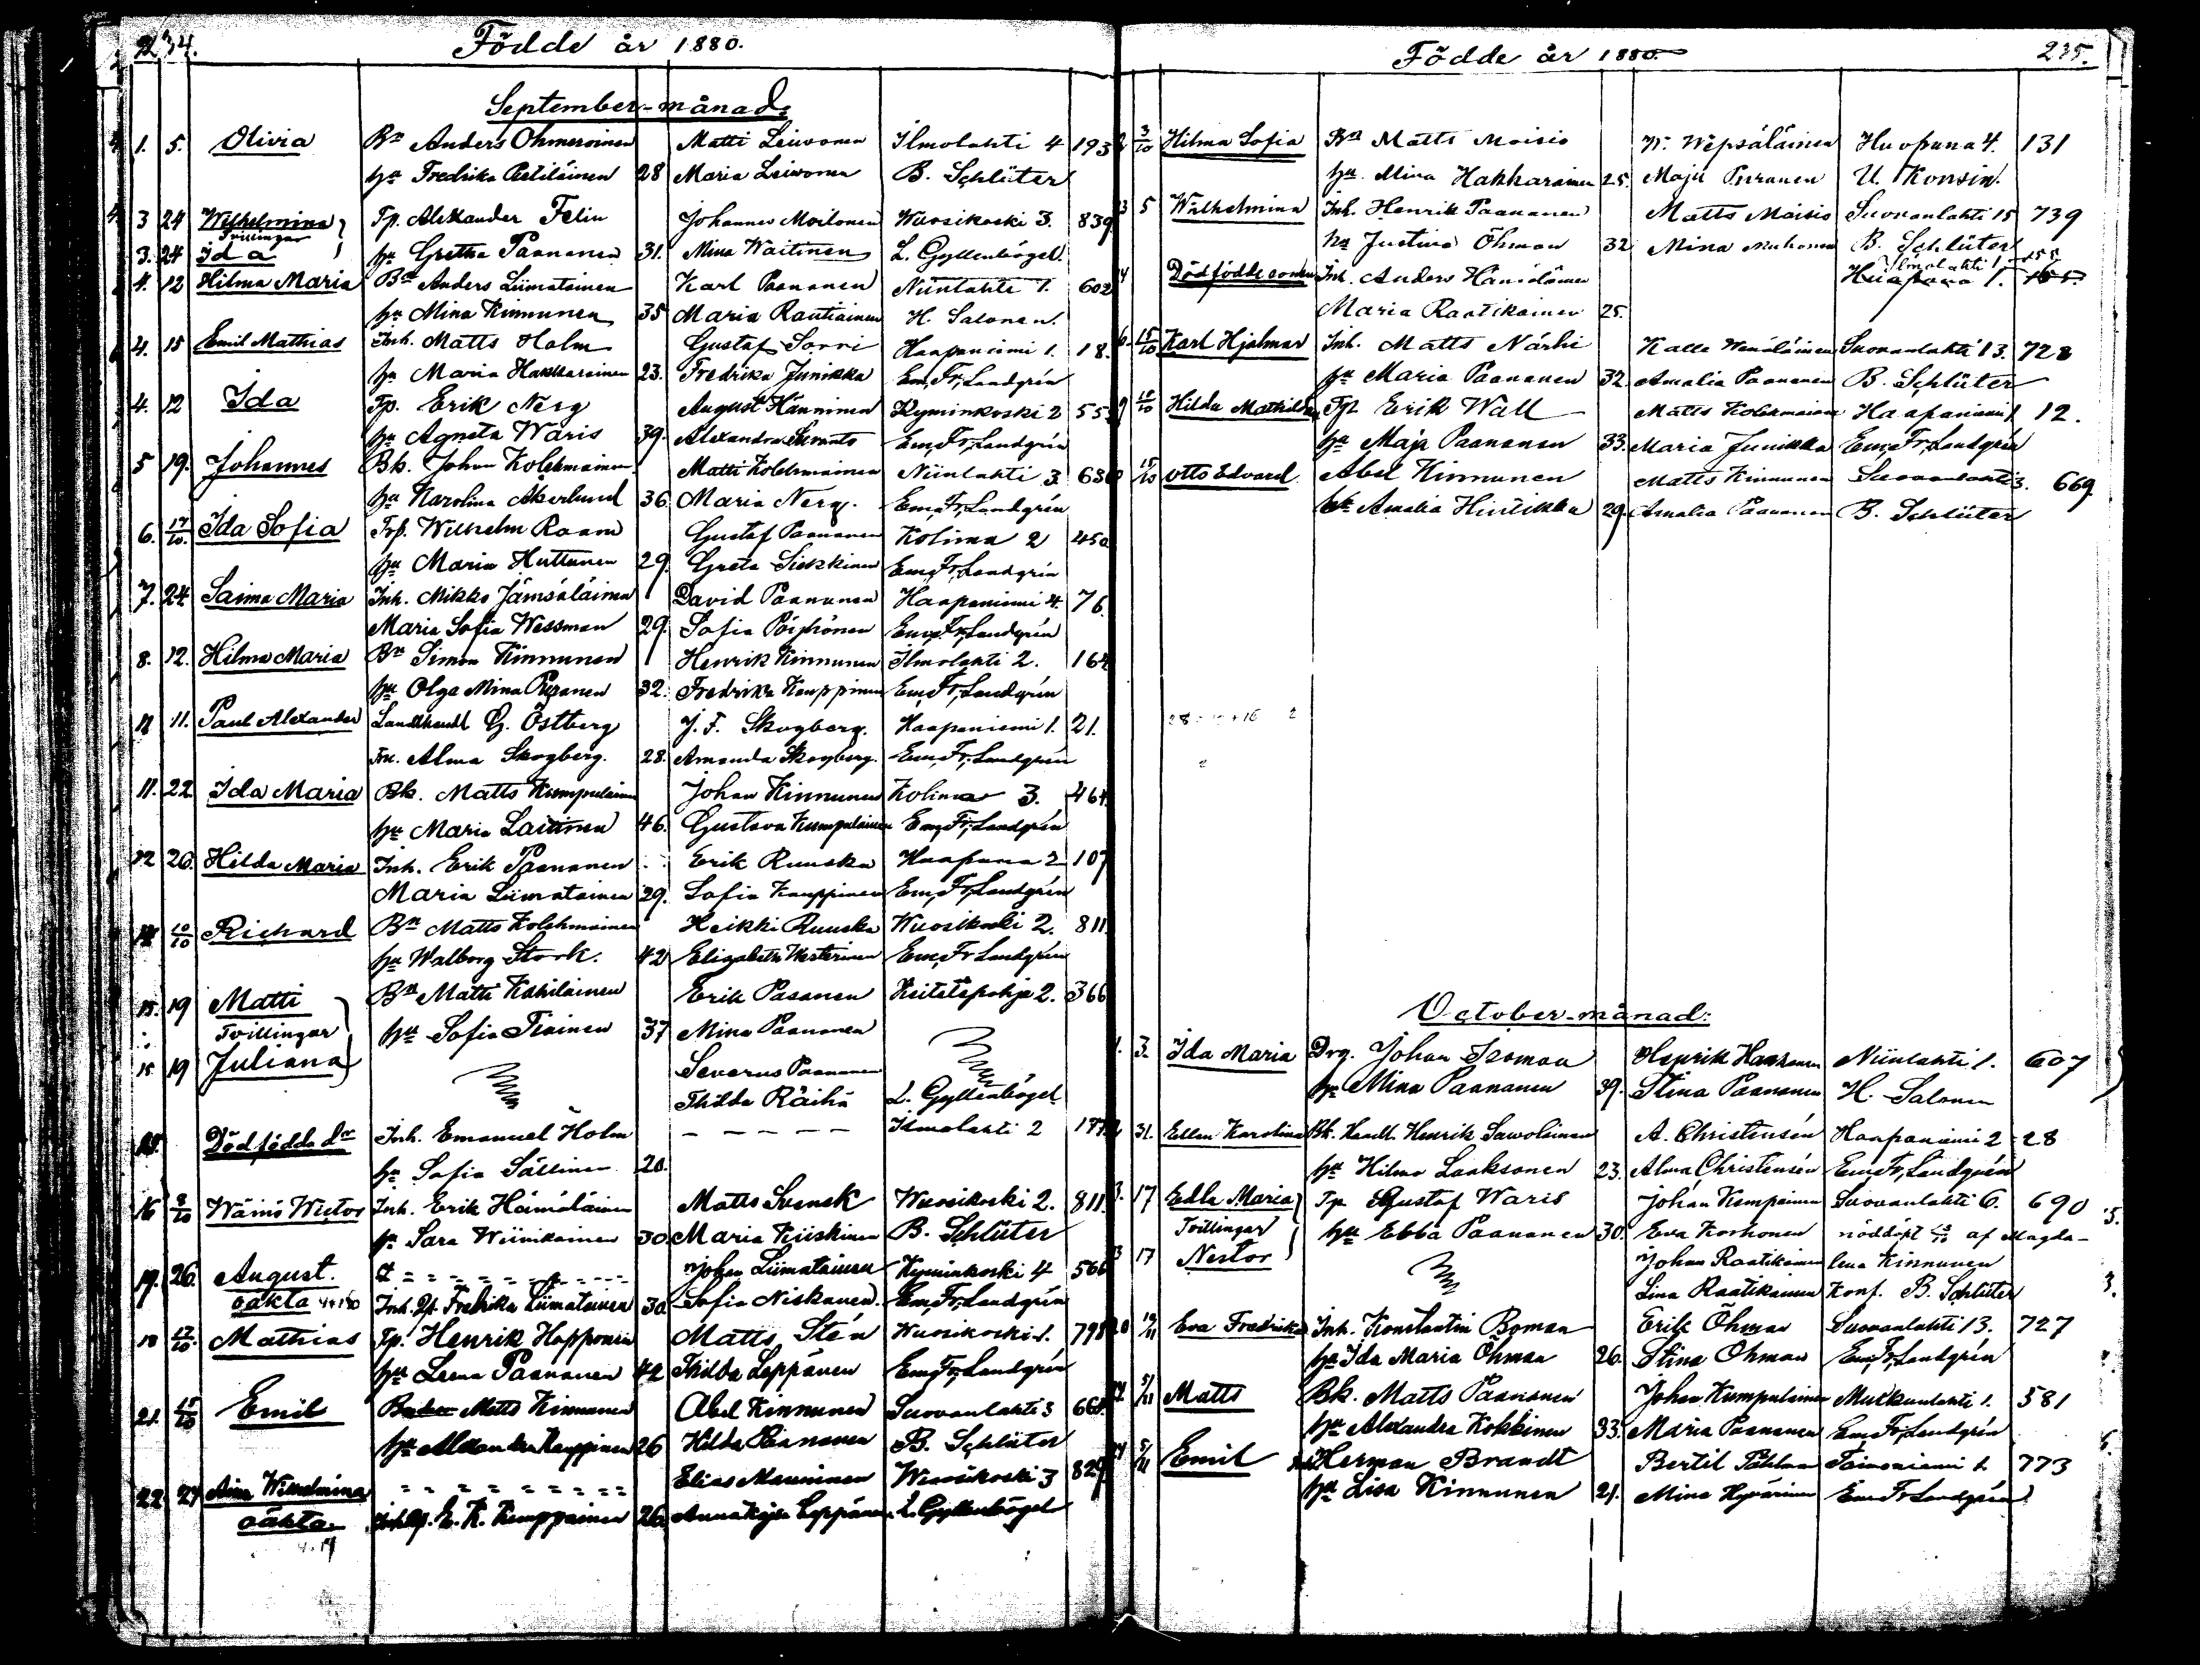 234.
Födde år 1880.
September-månad:
1. 5. Olivia Bn Anders Ohmeroinen Matti Leivonen Ilmolahti 4 193
hu Fredrika Pestiläinen 28 Maria Leivonen B. Schlüter
3 24 Wilhelmina Tp. Alexander Felin Johannes Moilanen Wuosikoski 3. 839
Tvillingar
3. 24 Ida hu Gretha Paananen 31. Mina Waitinen L. Gyllenbögel
4. 12 Hilma Maria Bn Anders Liimatainen Karl Paananen Niinlahti 1. 602
hu Mina Kinnunen 35 Maria Rautiainen H. Salonen.
4. 15 Emil Mathias Inh. Matts Holm Gustaf Sorri Haapaniemi 1. 18.
hu Maria Hakkarainen 23. Fredrika Junikka Em. Fr. Landgrén
4. 12 Ida Tp. Erik Nerg August Hänninen Kyminkoski 2 553
hu Agneta Waris 39. Alexandra Em. Fr. Landgrén
5 19. Johannes Bk. Johan Kolehmainen Matti Kolehmainen Niinlahti 3. 630
hu Karolina Åkerlund 36. Maria Nerg. Em. Fr. Landgrén
6. 17/10. Ida Sofia Trp. Wilhelm Gustaf Paananen Kolima 2 450
hu Maria Huttunen 29. Greta Siekkinen Em. Fr. Landgrén
7. 24. Saima Maria Inh. Mikko Jämsäläinen David Paananen Haapaniemi 4. 76.
Maria Sofia Wessman 29. Sofia Pöyhönen Em. Fr. Landgrén
8. 12. Hilma Maria Bn Simon Kinnunen Henrik Kinnunen Ilmolahti 2. 164
hu Olga Mina Puranen 32. Fredrika Kauppinen Em. Fr. Landgrén
11. Paul Alexander Landthandl G. Östberg J. F. Skogberg. Haapaniemi 1. 21.
Fru. Alma Skogberg. 28. Amanda Skogberg. Em. Fr. Landgrén
11. 22. Ida Maria Bk. Matts Kumpulainen Johan Kinnunen Kolima 3. 464
hu Maria Laitinen 46. Gustava Kumpulainen Em. Fr. Landgrén
12 20. Hilda Maria Inh. Erik Paananen Erik Ruuska Huopana 2 107
Maria Liimatainen 29. Sofia Kauppinen Em. Fr. Landgrén
10/10 Richard Bn Matts Kolehmainen Heikki Ruuska Wuosikoski 2. 811.
hu Walborg Stork. 42 Elisabeth Westerinen Em. Fr. Landgrén
15. 19 Matti Bn Matti Kähiläinen Erik Pasanen Keitelepohja 2. 366
Tvillingar hu Sofia Tiainen 37 Mina Paananen
15 19 Juliana Severus Paananen
Thilda Räihä L. Gyllenbögel
Dödfödda dr Inh. Emanuel Holm - - - - - Ilmolahti 2
hu Sofia Sällinen 20.
16 Wäinö Wictor Inh. Erik Hämäläinen Matts Svensk Wuosikoski 2. 811.
hu Sara Wiinikainen 30. Maria Kiiskinen B. Schlüter
19. 26. August. Johan Liimatainen Kyminkoski 4 566
oäkta Inh. Qp. Fredrika Liimatainen 30 Sofia Niskanen. Em. Fr. Landgrén
17/10. Mathias Tp. Henrik Hopponen Matts Stén Wuosikoski 1. 798
hu Leena Paananen 42 Thilda Leppänen Em. Fr. Landgrén
21. 15/10 Emil Matts Kinnunen Abel Kinnunen Suovanlahti 3
hu Alexandra Kauppinen 26 Hilda Paananen B. Schlüter
22. 27 Aina Wilhelmina - - - - - - - - Elias Manninen Wuosikoski 3 829
oäkta. Inh. Qp. E. K. Kemppainen 26. Anna Kajsa Leppänen L. Gyllenbögel
Födde år 1880.
235.
3/10 Hilma Sofia Bn Matts Moisio W. Wepsäläinen Huopana 4. 131
hu. Mina Hakkarainen 25. Maja Puranen U. Konsin.
5 Wilhelmina Inh. Henrik Paananen Matts Moisio Suovanlahti 15 739
hu Justina Öhman 32 Mina Muhonen B. Schlüter
Ilmolahti 1 155
Dödfödde sonen Inh. Anders Hämäläinen Huopana 1.
Maria Raatikainen 25.
15/10 Karl Hjalmar Inh. Matts Närhi Kalle Wenäläinen Suovanlahti 13. 728
hu Maria Paananen 32. Amalia Paananen B. Schlüter
10/10 Hilda Mathilda Tp. Erik Wall Matts Kolehmainen Haapaniemi 1 12.
hu Maja Paananen 33. Maria Junikka Em. Fr. Landgrén
15/10 Otto Edvard Abel Kinnunen Matts Kinnunen Suovanlahti 3. 669.
hu Amalia Hintikka 29. Amalia Paananen B. Schlüter
October-månad:
1. 3. Ida Maria Drg. Johan Isoman Henrik Niinlahti 1. 607
hu Mina Paananen 39. Stina Paananen H. Salonen
31. Ellen Karolina Bk. Handl. Henrik Sawolainen A. Christensén Haapaniemi 2 28
hu Hilma Laaksonen 23. Alma Christensén Em. Fr. Landgrén
3. 17 Edla Maria Tp Gustaf Waris Johan Kempainen Suovanlahti 6. 690
Tvillingar hu Ebba Paananen 30. Eva Korhonen nöddöpt af Magda-
3 17 Nestor Johan Raatikainen lena Kinnunen
Lina Raatikainen Konf. B. Schlüter
Eva Fredrika Inh. Konstantin Boman Erik Öhman Suovanlahti 13. 727
hu Ida Maria Öhman 26. Stina Öhman Em. Fr. Landgrén
5/11 Matts Bk. Matts Paananen Johan Kumpulainen Mutkunlahti 1. 581
hu Alexandra Kokkinen 33. Maria Paananen Em. Fr. Landgrén
5/11 Emil Herman Brandt Bertil Påhlman Toimoniemi 1. 773
hu Lisa Kinnunen 21. Mina Hyvärinen Em. Fr. Landgrén